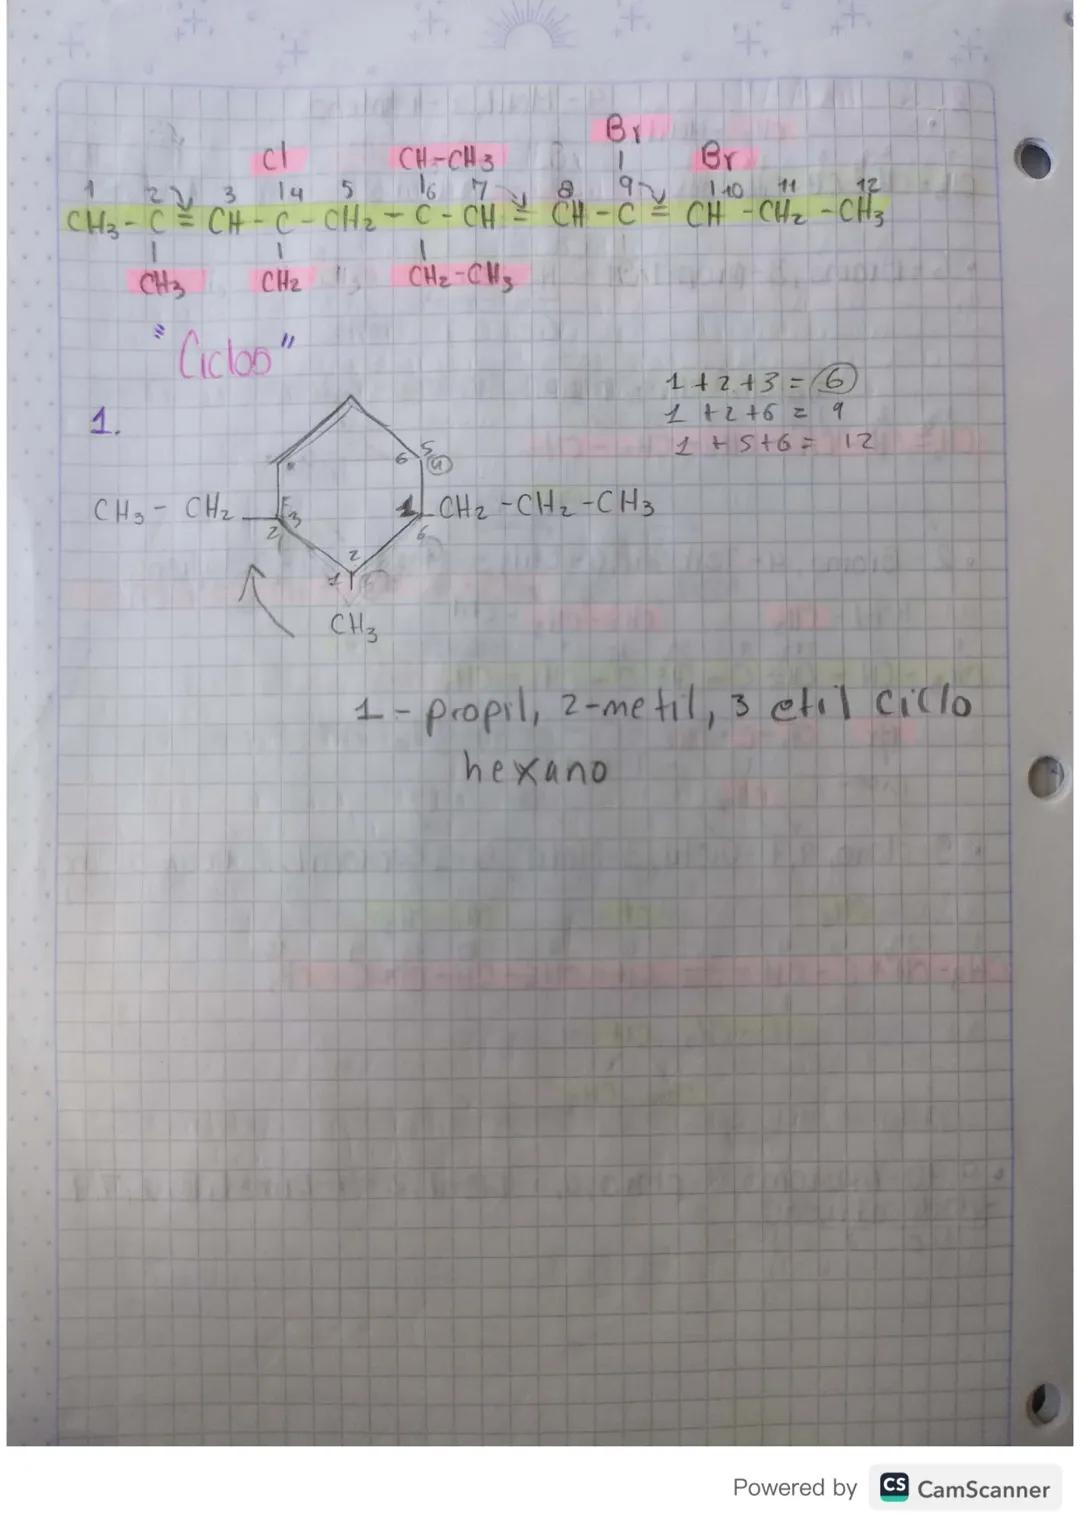 Br
Cl CH-CH3 Br
1 2 3 4 5 6 7 8 9 10 11 12
CH3-C=CH-C-CH2-C-CH=CH-C=CH-CH2-CH3
CH3 CH2 CH2-CH3
"Ciclos"
1+2+3=6
1.
1+2+6=9
1+5+6=12
6 5 4
CH3-CH2 3 1 CH2-CH2-CH3
2 6
2
1
CH3
1-propil, 2-metil, 3 etil ciclo
hexano
Powered by CS CamScanner